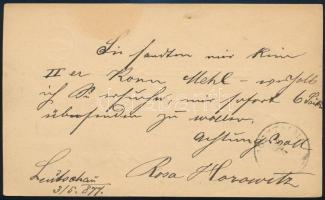 Sie sandten mir kein
II er Korn Mehl - weshalb
ich Sie ersuche mir sofort 6
übersenden zu wollen.
Achtungsvoll
Leutschau
3/5. 877.
Rosa Horowitz